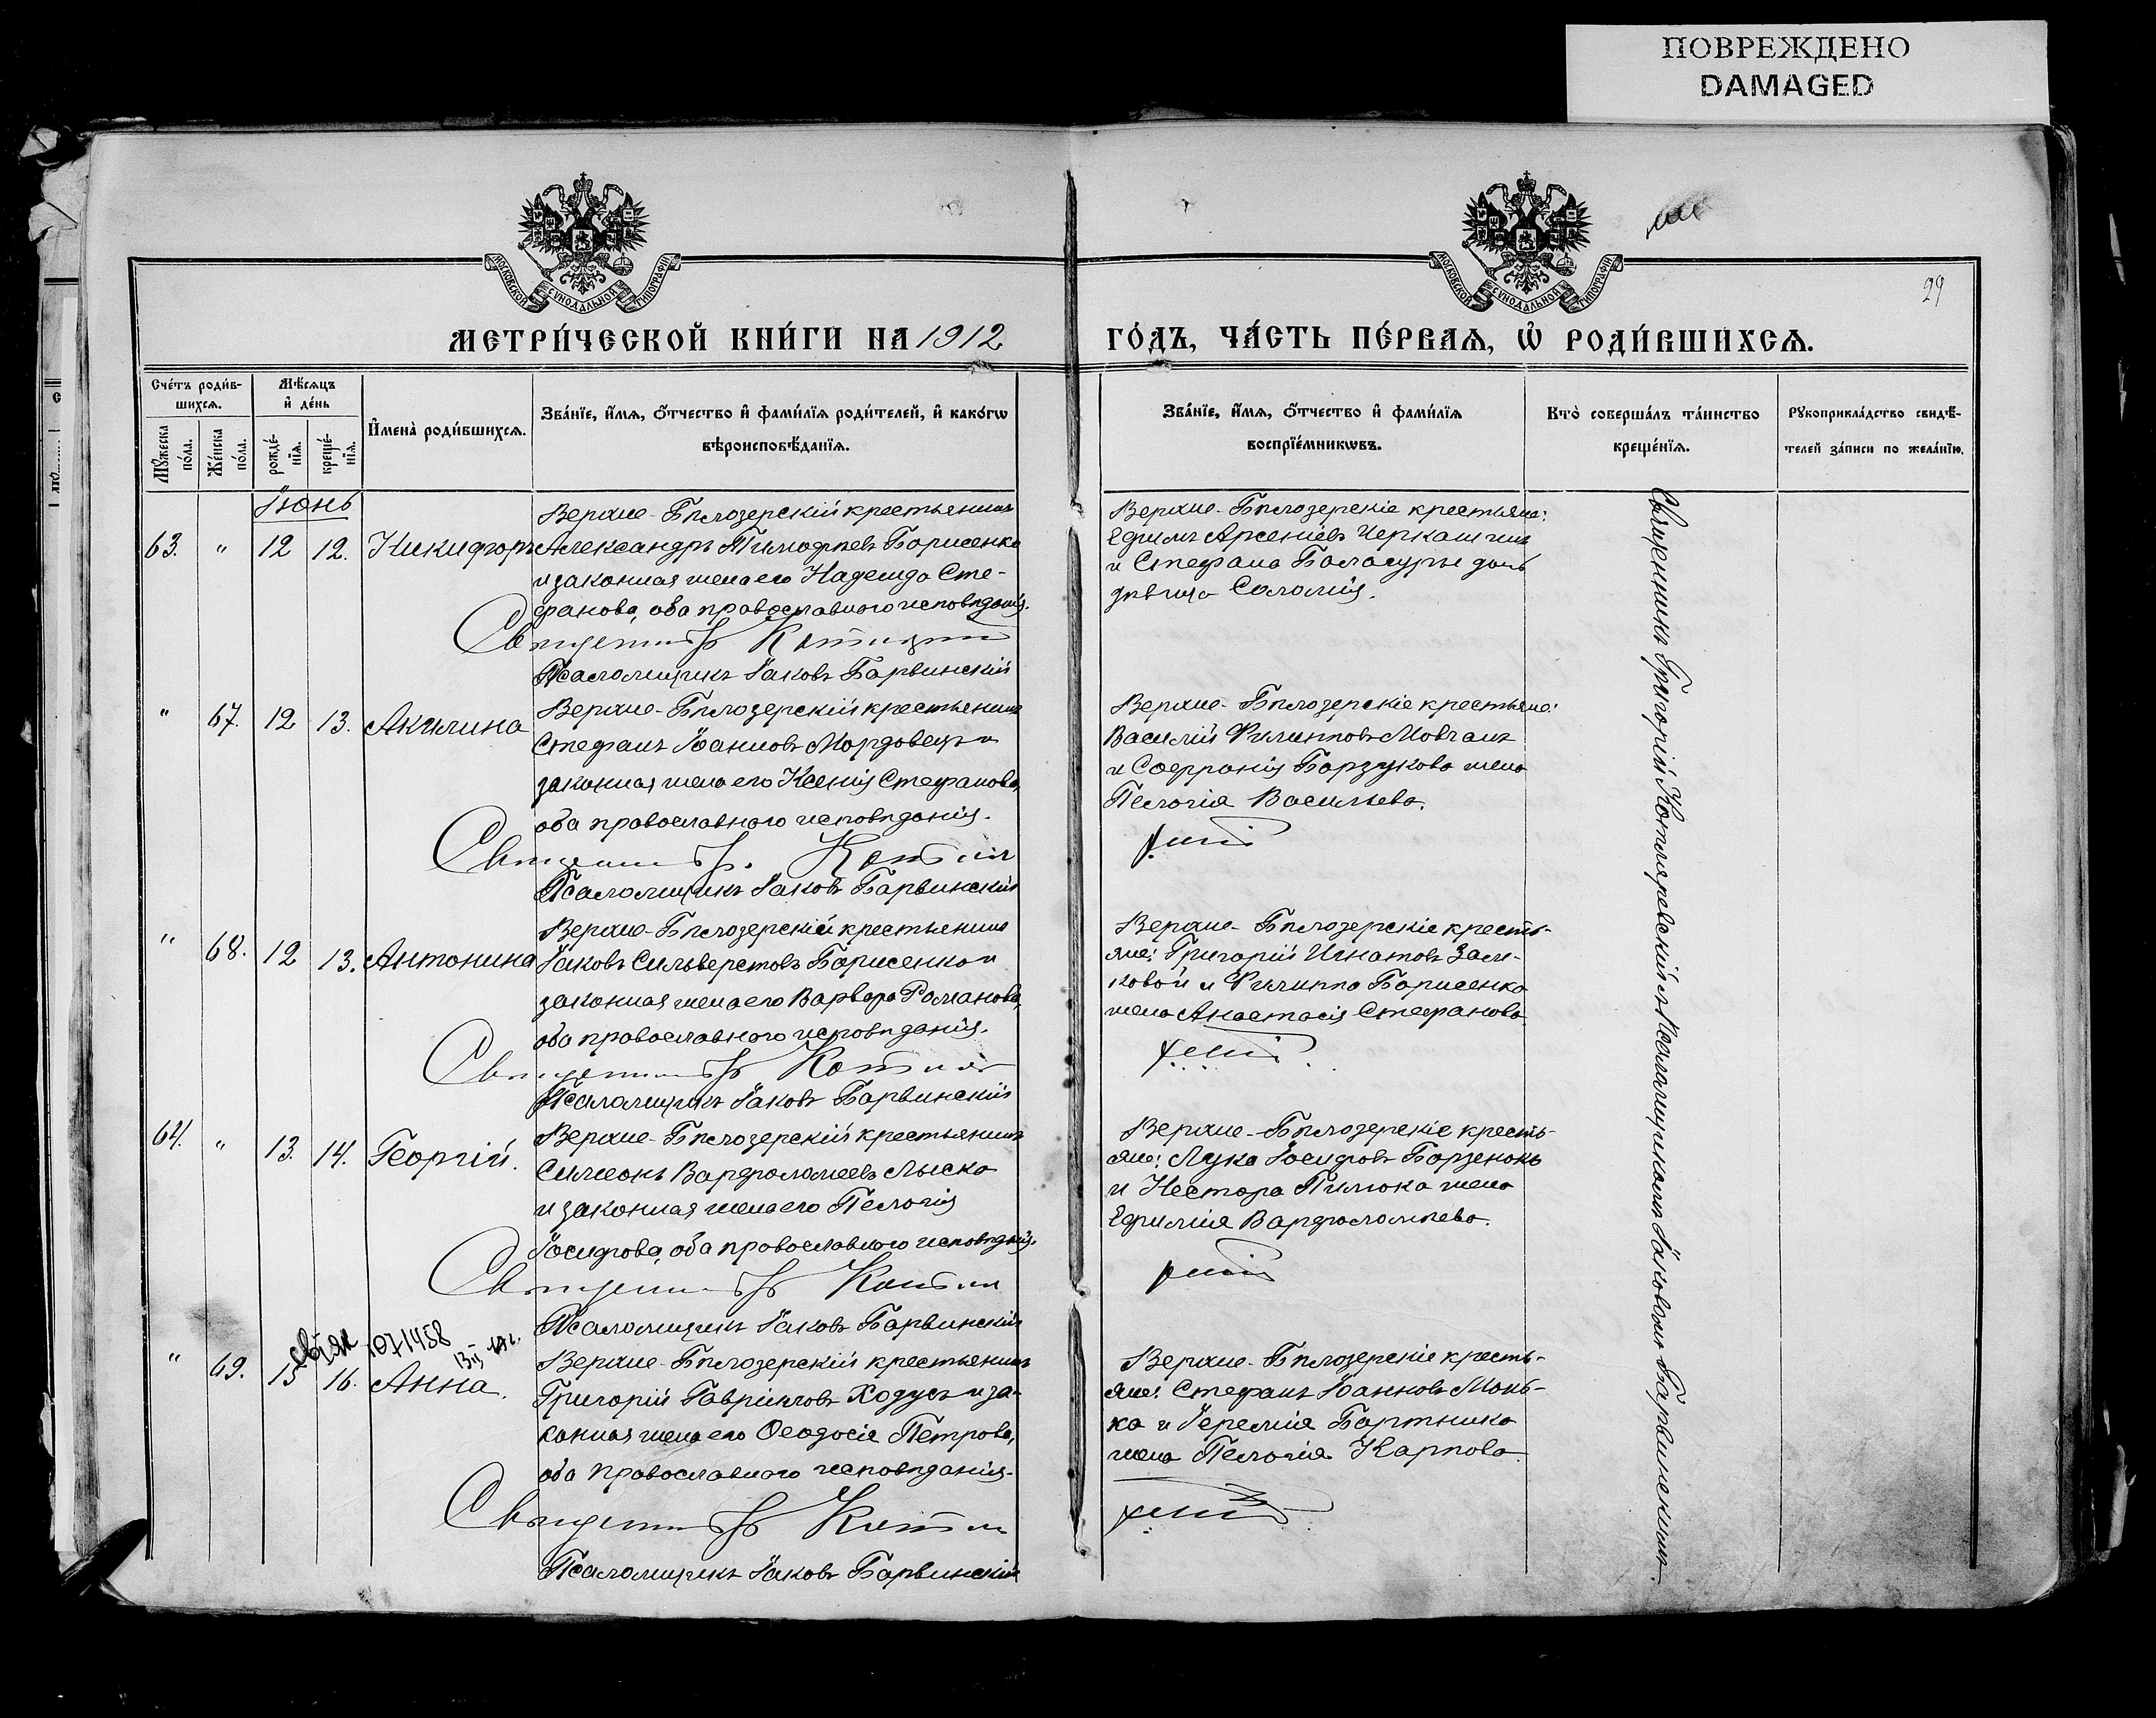 ПОВРЕЖДЕНО
DAMAGED
МОСКОВСКОЙ СѴНОДАЛЬНОЙ ТИПОГРАФІИ
МОСКОВСКОЙ СѴНОДАЛЬНОЙ ТИПОГРАФІИ
29
МЕТРИ́ЧЕСКОЙ КНИ́ГИ НА 1912
ГО́ДЪ, ЧА́СТЬ ПЕ́РВАѦ, Ѽ РОДИ́ВШИХСѦ.
Сче́тъ роди́в-
шихсѧ.
Мꙋ́жеска по́ла.
Же́нска по́ла.
Мѣ́сѧцъ
и҆ де́нь
рожде́-
нїѧ.
креще́-
нїѧ.
И҆мена̀ роди́вшихсѧ.
Зва́нїе, и҆́мѧ, ѻ҆́тчество и҆ фами́лїѧ роди́телей, и҆ како́гѡ
вѣроисповѣ́данїѧ.
Зва́нїе, и҆́мѧ, ѻ҆́тчество и҆ фами́лїѧ
воспрїе́мникѡвъ.
Кто̀ соверша́лъ та́инство
креще́нїѧ.
Рꙋкоприкла́дство свидѣ́-
телей за́писи по жела́нїю.
Іюнь
63. " 12 12. Никифоръ
Верхне-Бѣлозерскій крестьянинъ
Александръ Тимофѣевъ Борисенко
и законная жена его Надежда Сте-
фанова, оба православнаго исповѣданія.
Священникъ
Псаломщикъ Іаковъ Барвинскій
Верхне-Бѣлозерскіе крестьяне:
Ефимъ Арсеніевъ Черкашинъ
и Стефана Баласуры дочь
дѣвица Саломія.
" 67. 12 13. Акилина
Верхне-Бѣлозерскій крестьянинъ
Стефанъ Іоанновъ Мордовецъ и
законная жена его Ксенія Стефанова,
оба православнаго исповѣданія.
Священникъ
Псаломщикъ Іаковъ Барвинскій
Верхне-Бѣлозерскіе крестьяне:
Василій Филипповъ Мовчанъ
и Софронія Борзукова жена
Пелагія Васильева.
" 68. 12 13. Антонина
Верхне-Бѣлозерскій крестьянинъ
Іаковъ Сильверстовъ Борисенко и
законная жена его Варвара Романова,
оба православнаго исповѣданія.
Священникъ
Псаломщикъ Іаковъ Барвинскій
Верхне-Бѣлозерскіе кресть-
яне: Григорій Игнатовъ Зали-
ковой и Филиппа Борисенка
жена Анастасія Стефанова
64. " 13. 14. Георгій.
Верхне-Бѣлозерскій крестьянинъ
Симеонъ Варфоломеевъ Лыско
и законная жена его Пелагія
Іосифова, оба православнаго исповѣданія.
Священникъ
Псаломщикъ Іаковъ Барвинскій
Верхне-Бѣлозерскіе кресть-
яне: Лука Іосифовъ Борзенокъ
и Нестора Пилюка жена
Ефимія Варфоломѣева.
1071458
" 69. 15 16. Анна.
Верхне-Бѣлозерскій крестьянинъ
Григорій Гавріиловъ Ходусъ и за-
конная жена его Ѳеодосія Петрова,
оба православнаго исповѣданія.
Священникъ
Псаломщикъ Іаковъ Барвинскій
Верхне-Бѣлозерскіе кресть-
яне: Стефанъ Іоанновъ Монь-
ко и Іеремія Бортника
жена Пелагія Карпова.
Священникъ Григорій Котляревскій съ Псаломщикомъ Іаковомъ Барвинскимъ.